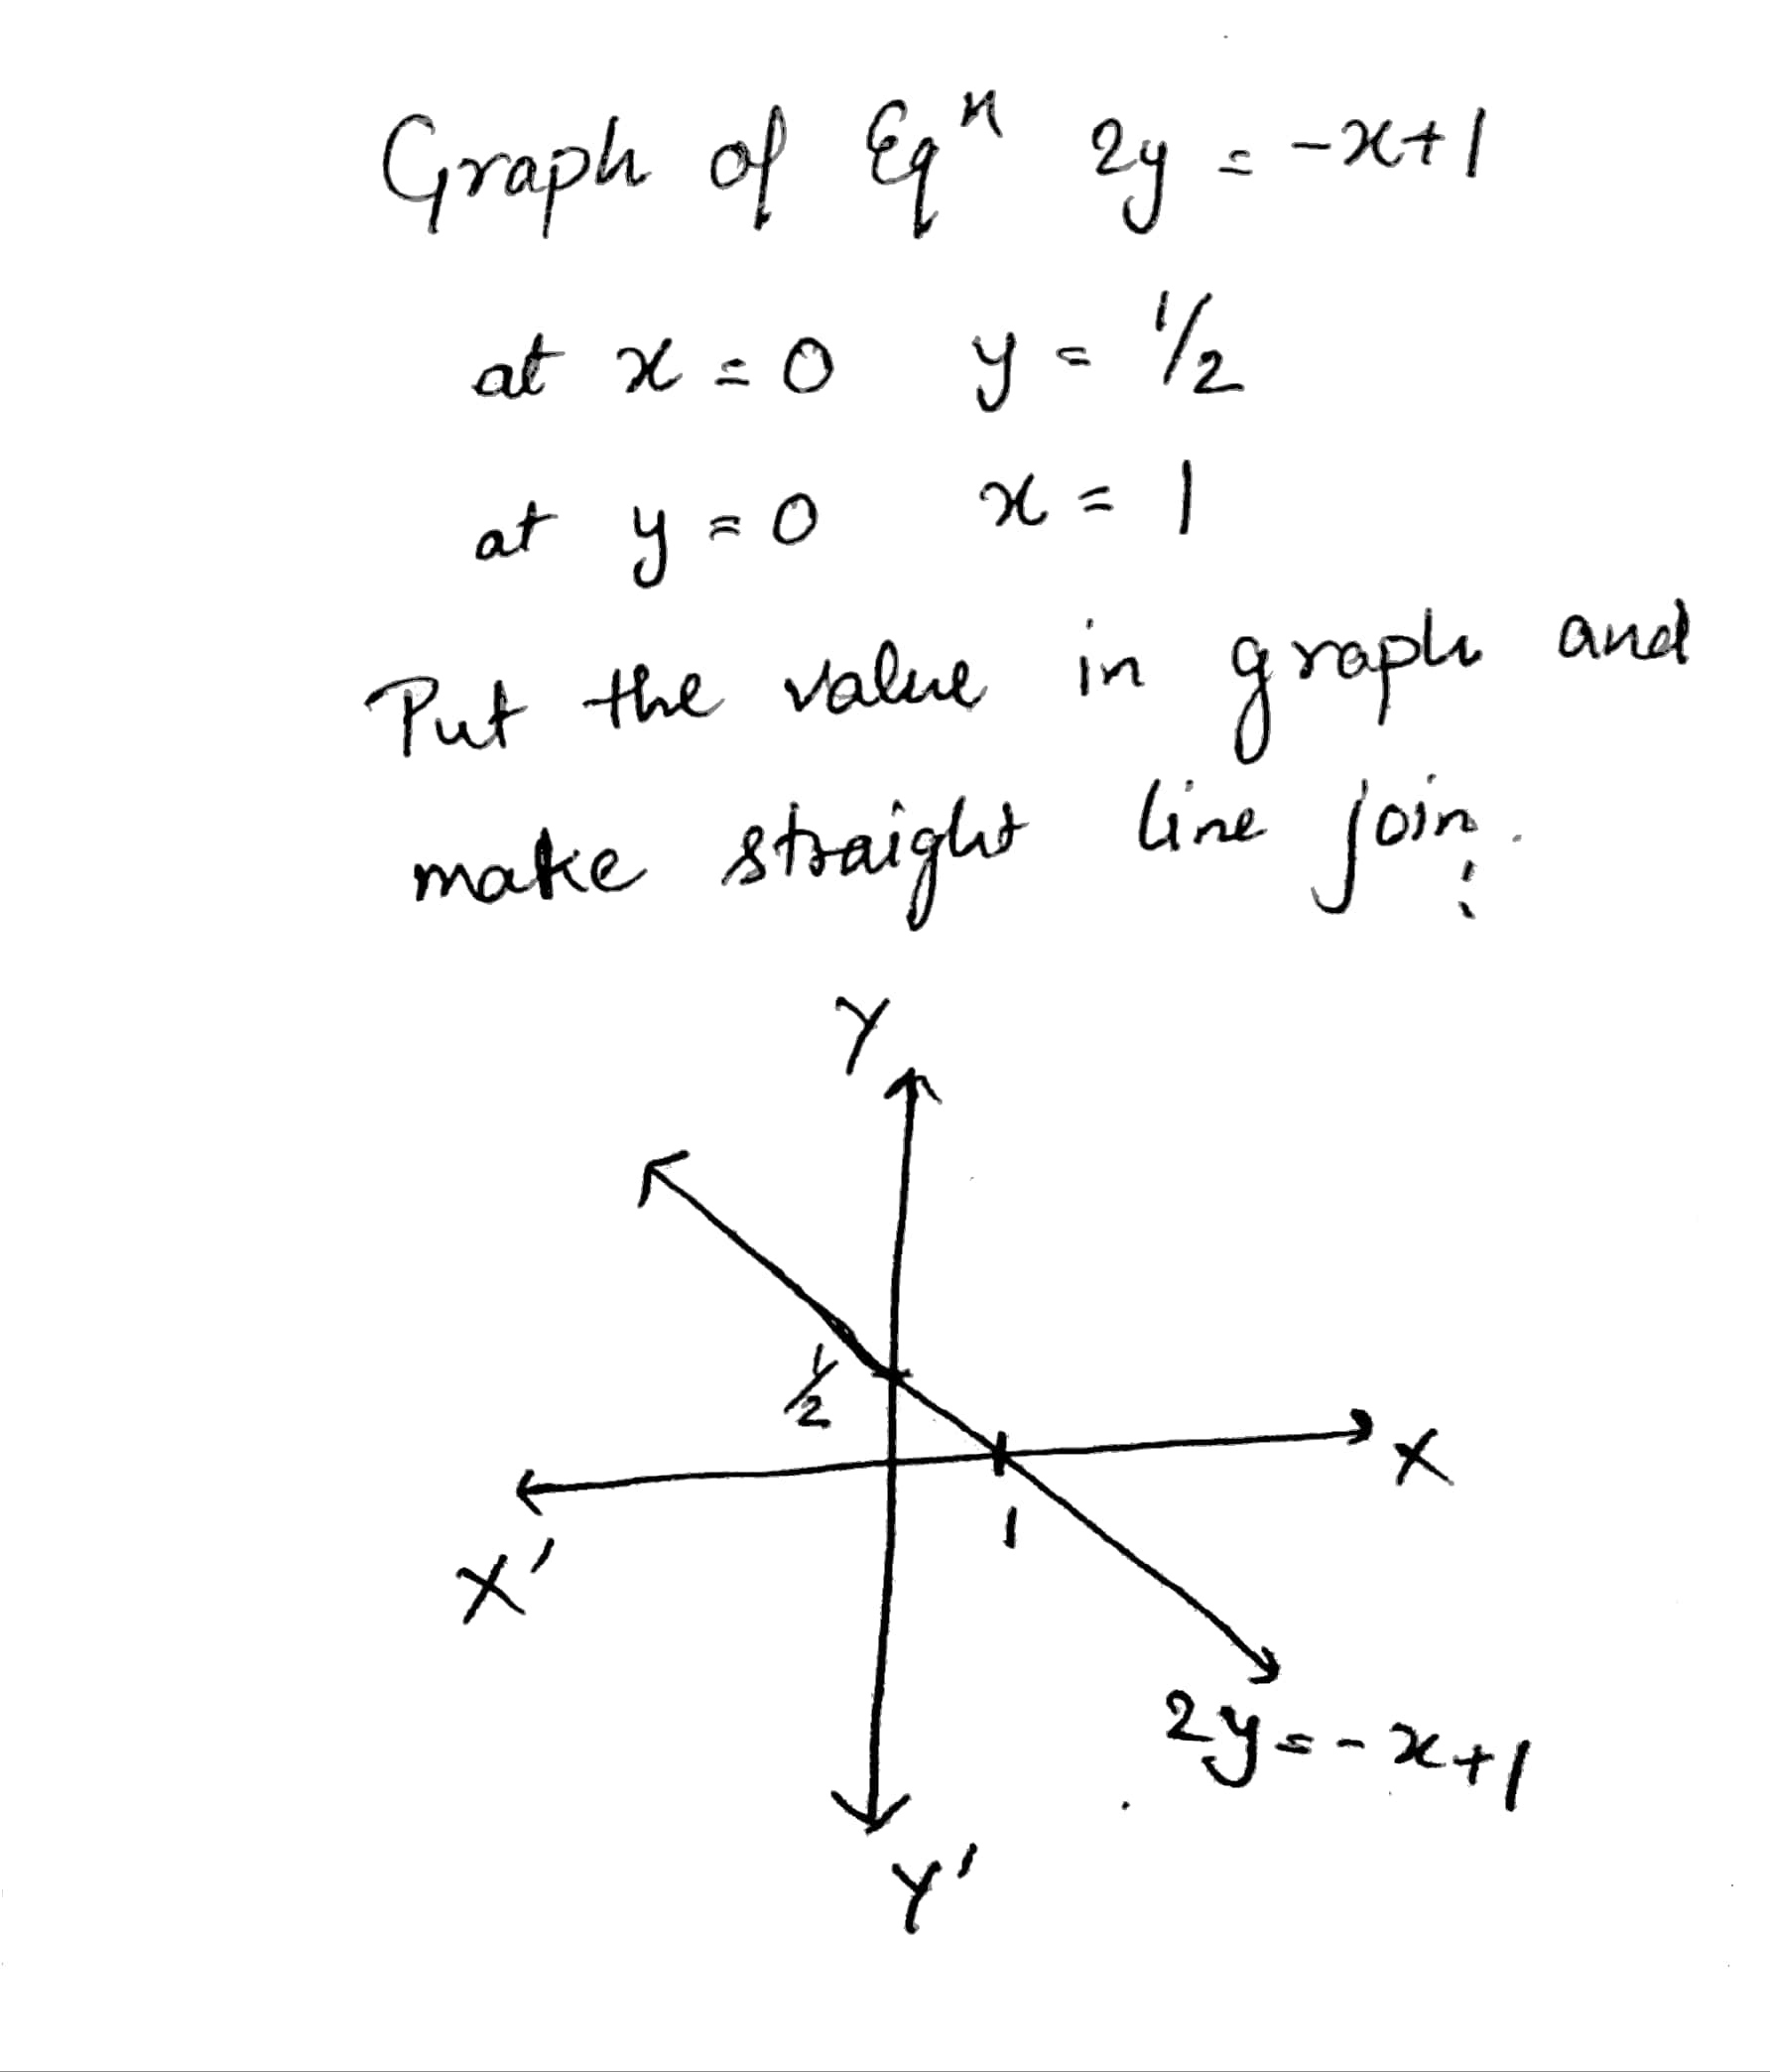 Graph of Eqⁿ 2y = -x+1
at x = 0 y = 1/2
at y = 0 x = 1
Put the value in graph and
make straight line join.
Y
1/2
X
1
X'
2y = -x+1
Y'